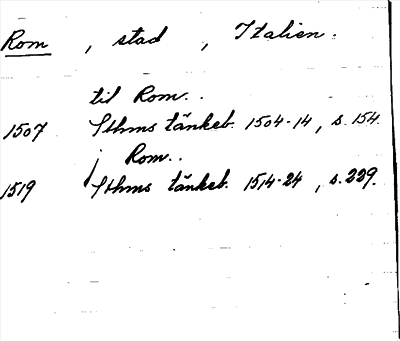 Rom , stad , Italien.
til Rom..
1507 Sthms tänkeb. 1504-14, s. 154.
j Rom..
1519 Sthms tänkeb. 1514-24, s. 229.